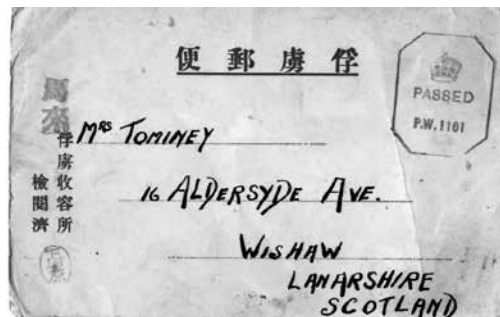 俘虜郵便
PASSED
P.W. 1161
馬來
俘虜收容所
檢閲濟
MRS TOMINEY
16 ALDERSYDE AVE.
WISHAW
LANARSHIRE
SCOTLAND